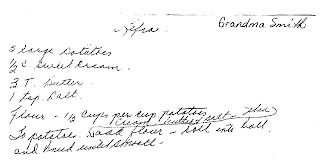 Lefsa
Grandma Smith
5 large potatoes
1/2 C. sweet cream
3 T. butter
1 tsp. salt
Flour - 1/2 cups per cup potatoes
cream butter salt -
To potatoes. add flour - roll into ball
and knead until smooth -